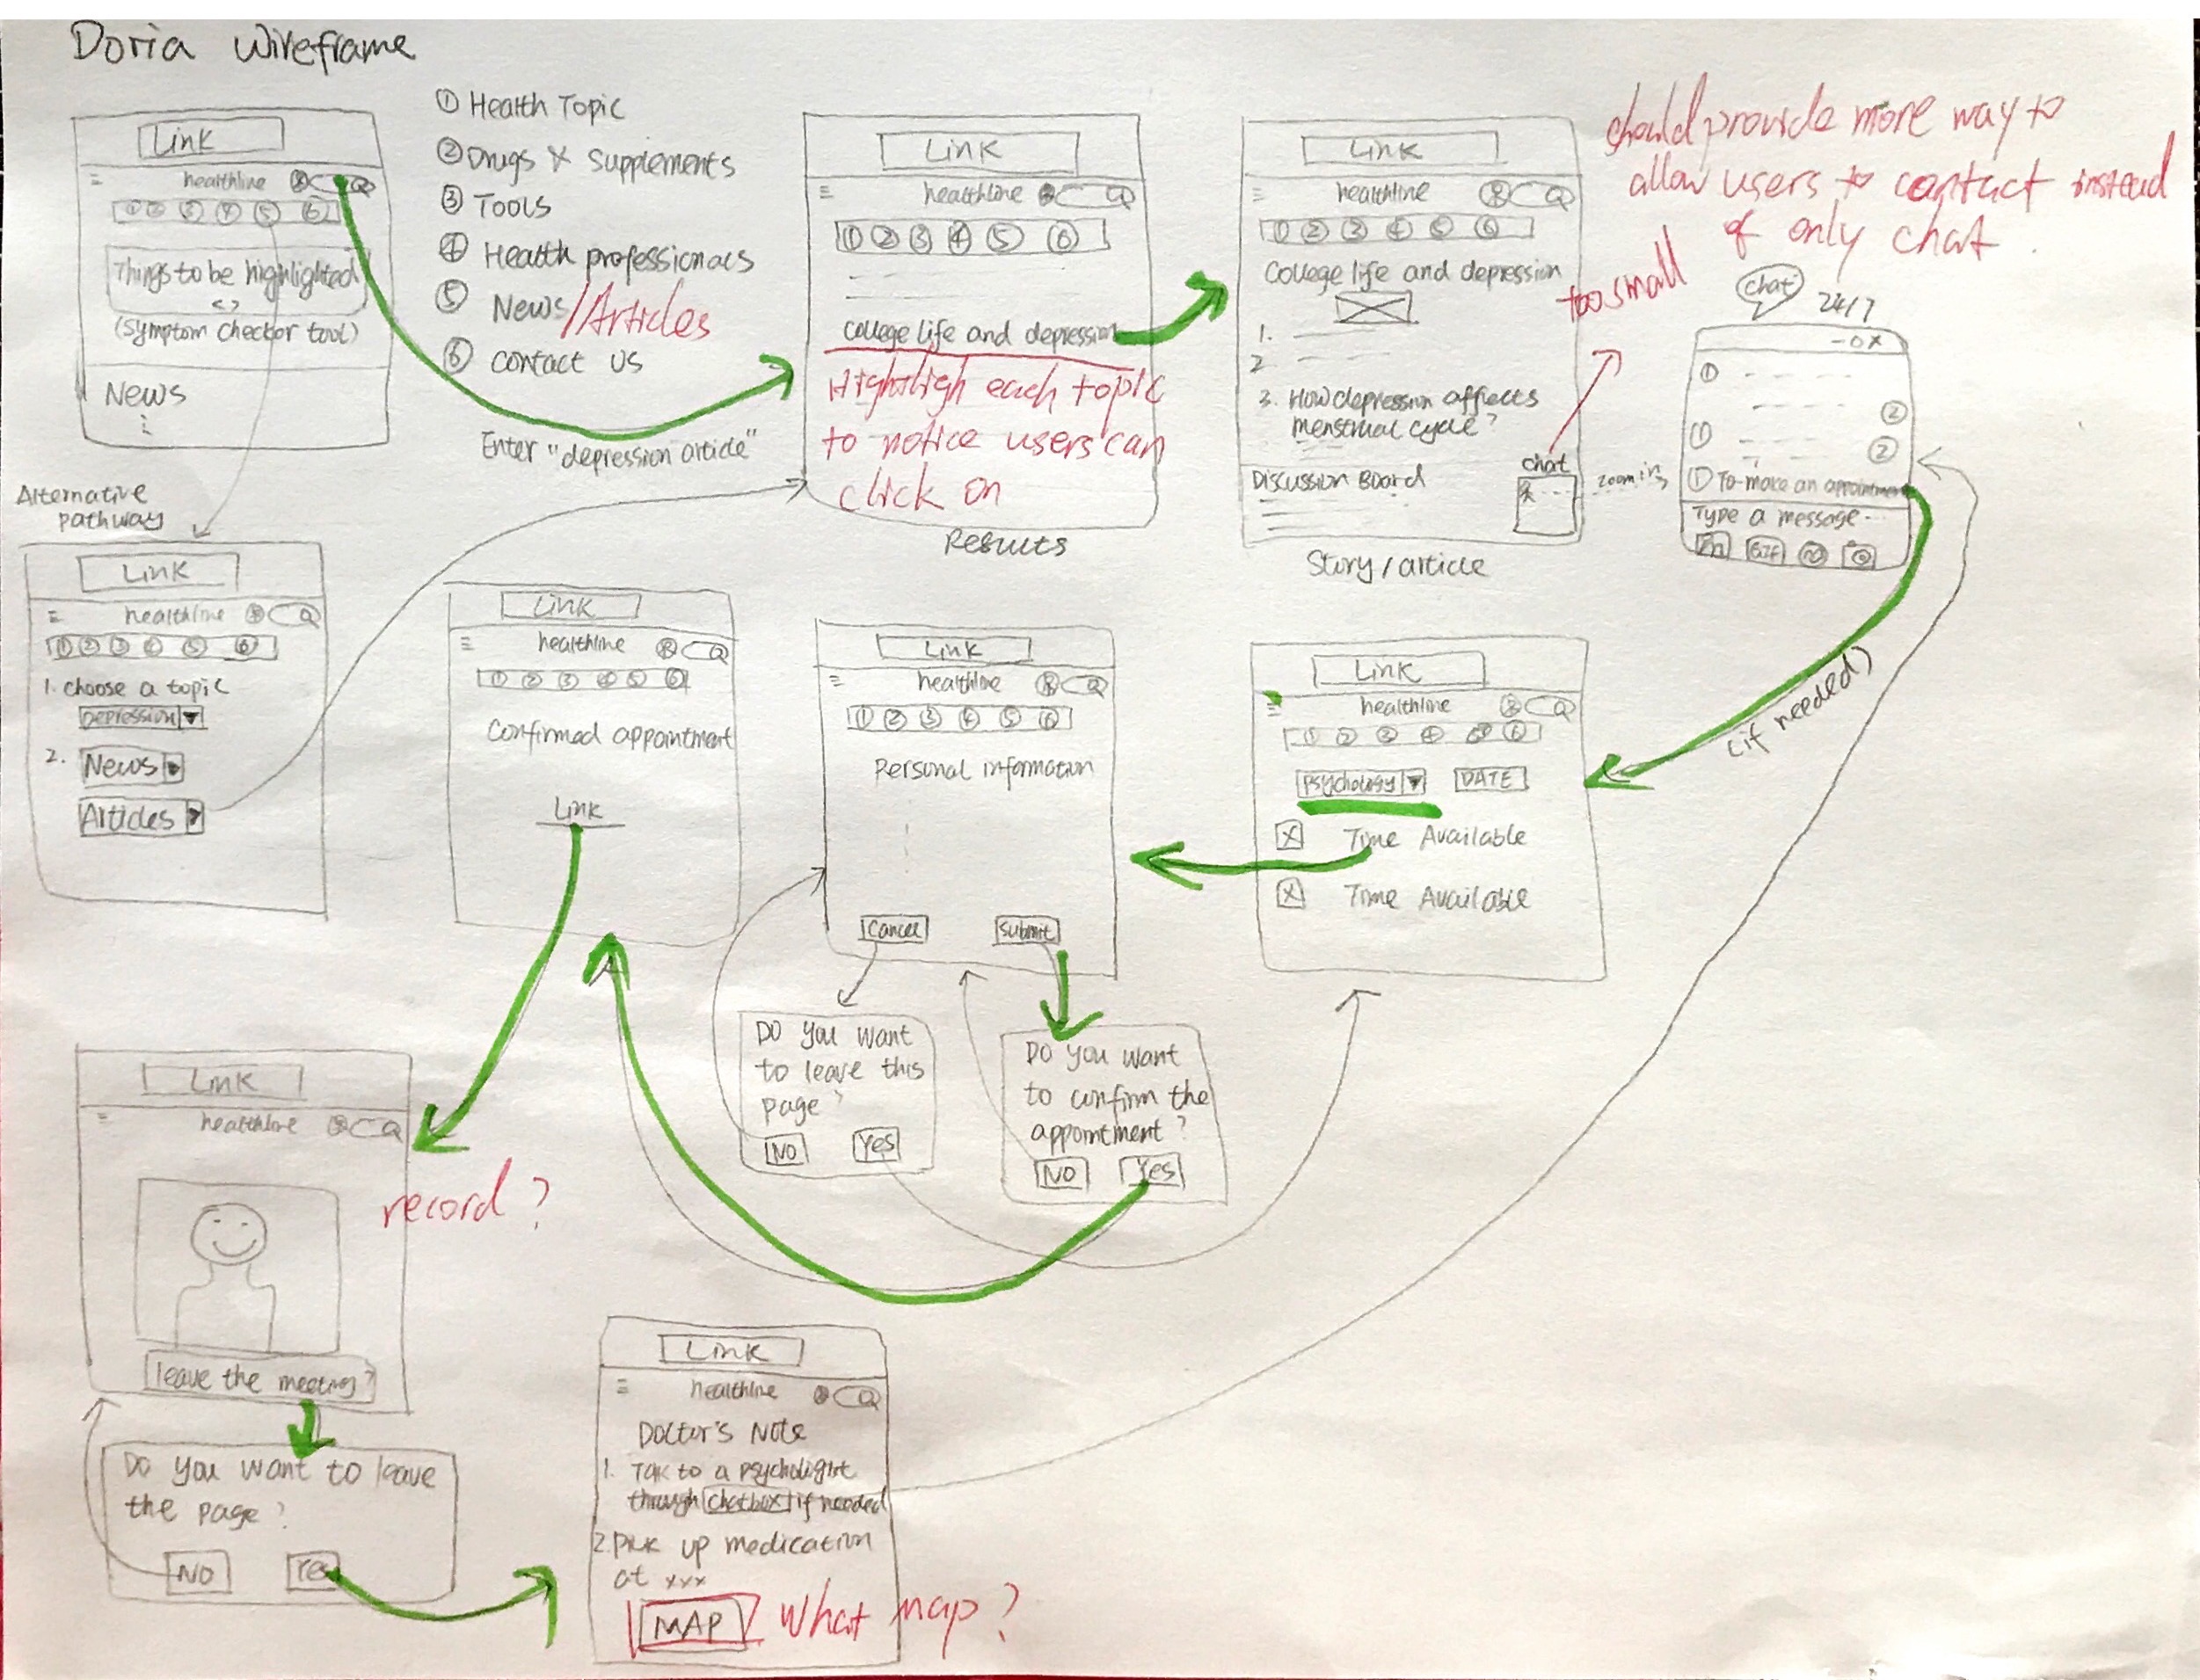 Doria Wireframe
Link
healthline
① ② ③ ④ ⑤ ⑥
Things to be highlighted
< >
(Symptom checker tool)
News
① Health Topic
② Drugs & Supplements
③ Tools
④ Health professionals
⑤ News/Articles
⑥ Contact us
Enter "depression article"
Link
healthline
① ② ③ ④ ⑤ ⑥
college life and depression
Hightligh each topic
to notice users can
click on
Results
Link
healthline
① ② ③ ④ ⑤ ⑥
College life and depression
1.
2
3. How depression affects
menstrual cycle?
Discussion Board
chat
Story/article
too small
zoom in
should provide more way to
allow users to contact instead
of only chat.
chat
24/7
- o x
①
②
①
②
① To make an appointment
Type a message..
GIF
(if needed)
Alternative
pathway
Link
healthline
① ② ③ ④ ⑤ ⑥
1. choose a topic
Depression
2. News
Articles
Link
healthline
① ② ③ ④ ⑤ ⑥
Confirmed appointment
Link
Link
healthline
① ② ③ ④ ⑤ ⑥
Personal information
Cancel
Submit
Do you want
to leave this
page?
NO
Yes
Do you want
to confirm the
appointment?
NO
Yes
Link
healthline
① ② ③ ④ ⑤ ⑥
Psychology
DATE
X Time Available
X Time Available
Link
healthline
record?
leave the meeting?
Do you want to leave
the page?
NO
Yes
Link
healthline
Doctor's Note
1. Talk to a psychologist
through chatbox if needed
2. Pick up medication
at xxx
MAP
What map?